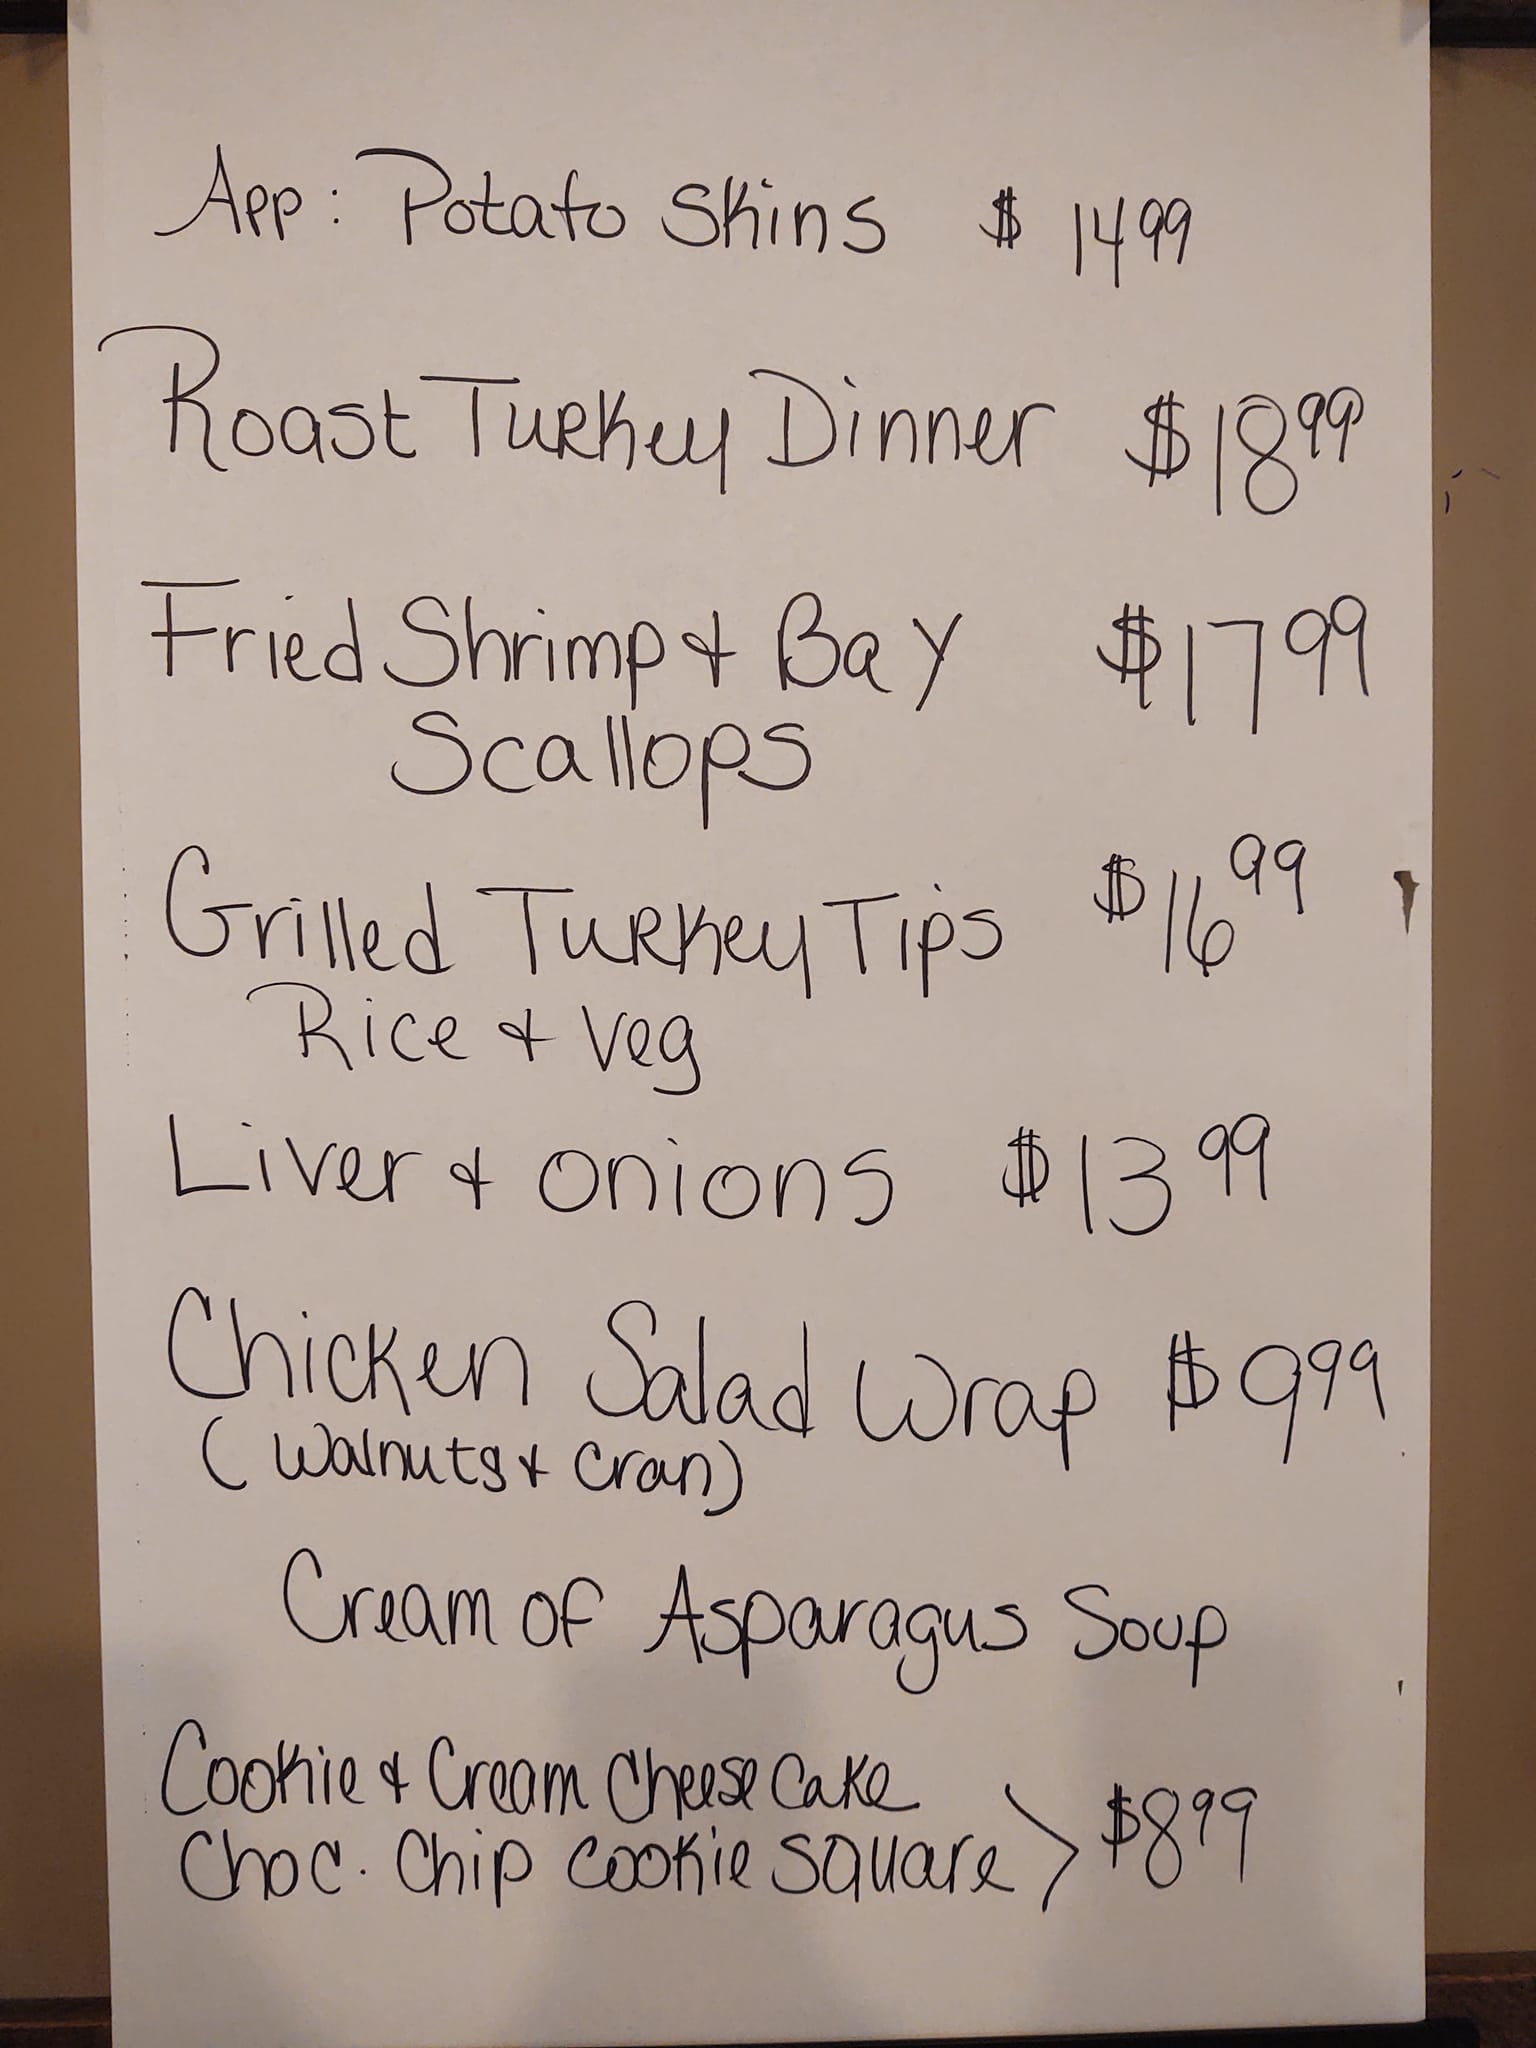 App: Potato Skins $ 14 99
Roast Turkey Dinner $18 99
Fried Shrimp & Bay $17 99
Scallops
Grilled Turkey Tips $16 99
Rice & Veg
Liver & onions $13 99
Chicken Salad Wrap $9 99
(Walnuts & Cran)
Cream of Asparagus Soup
Cookie & Cream Cheese Cake
Choc. Chip Cookie Square > $8 99